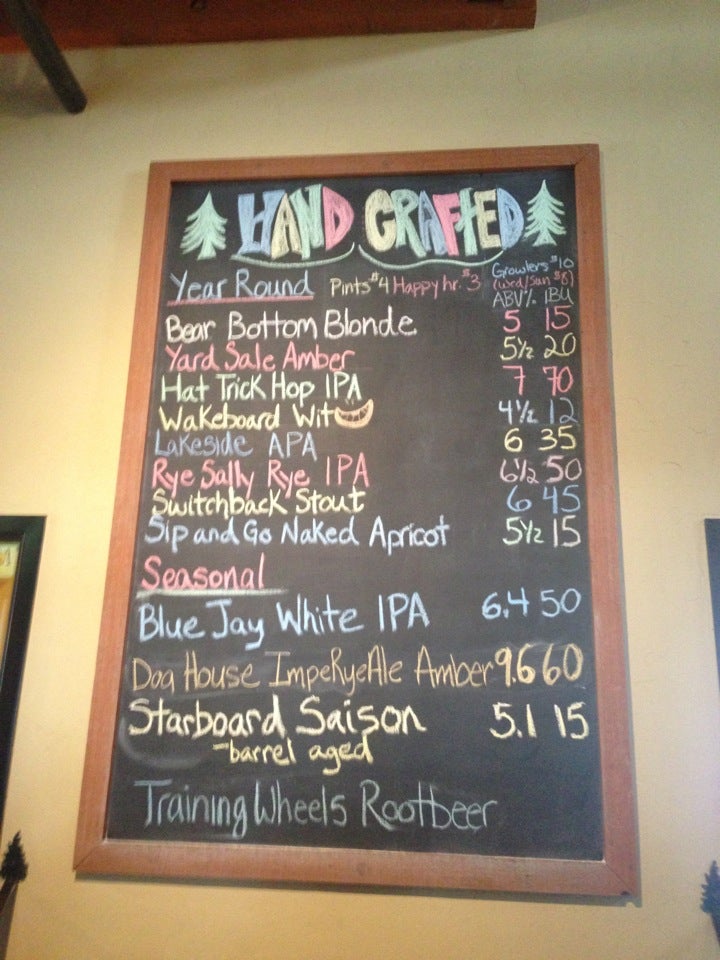 HAND CRAFTED
Year Round Pints $4 Happy hr. $3 Growlers $10
(Wed/Sun $8)
ABV% IBU
Bear Bottom Blonde 5 15
Yard Sale Amber 5½ 20
Hat Trick Hop IPA 7 70
Wakeboard Wit 4½ 12
Lakeside APA 6 35
Rye Sally Rye IPA 6½ 50
Switchback Stout 6 45
Sip and Go Naked Apricot 5½ 15
Seasonal
Blue Jay White IPA 6.4 50
Dog House ImpeRyeAle Amber 9.6 60
Starboard Saison 5.1 15
-barrel aged
Training Wheels Rootbeer